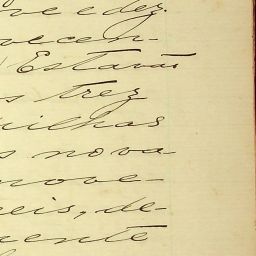 ove e dez
vecen-
Estavão
s trez
milhas
s nova-
nove-
reis, de-
mente